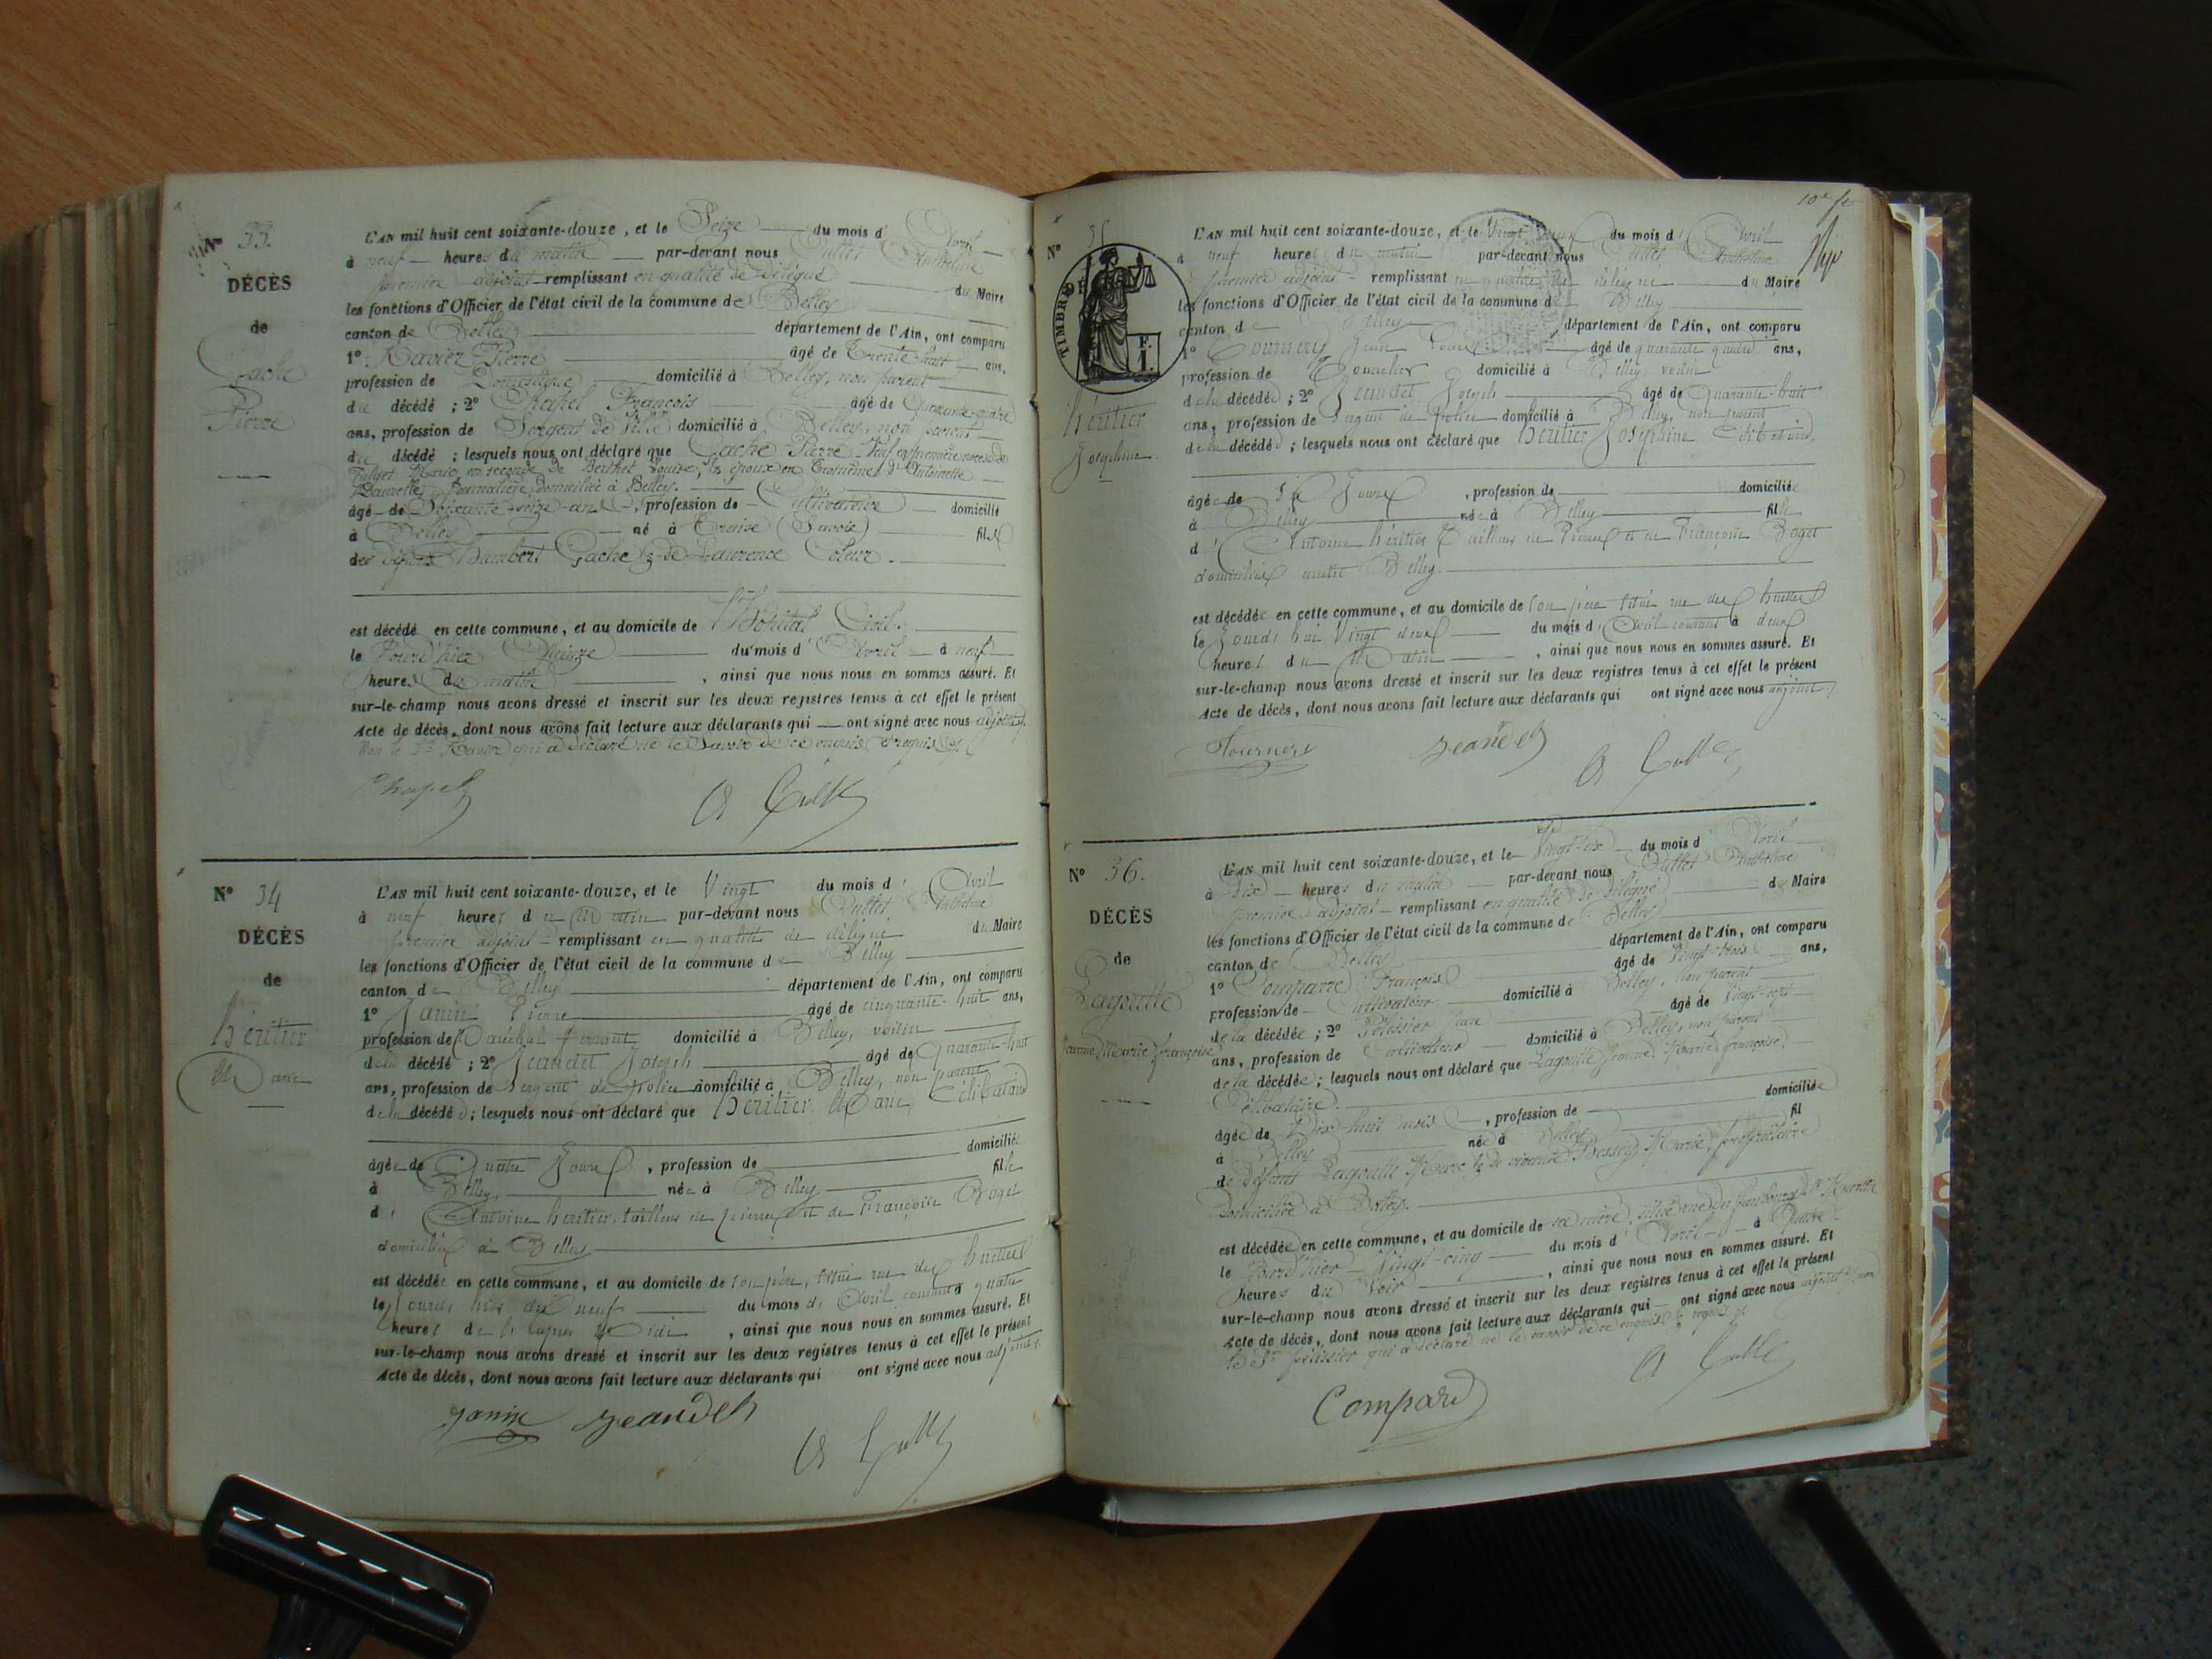 N° 33.
DÉCÈS
de
Gache
Pierre
L'AN mil huit cent soixante-douze, et le Seize du mois d'Avril
à neuf heures du matin par-devant nous Anthelme
premier adjoint remplissant en qualité de Délégué du Maire
les fonctions d'Officier de l'état civil de la commune de Belley
canton de Belley département de l'Ain, ont comparu
1° Ravier Pierre âgé de Trente-huit ans,
profession de Domestique domicilié à Belley, non parent
du décédé ; 2° Chapel François âgé de Quarante-quatre
ans, profession de Sergent de Ville domicilié à Belley, non parent
du décédé ; lesquels nous ont déclaré que Gache Pierre Veuf en première noces de
Marie, en seconde de Berthet Louise, époux en troisième d'Antoinette
journalière, domiciliée à Belley.
âgé de Soixante-seize ans, profession de Cultivateur domicilié
à Belley né à Traise (Savoie) fils
des défunts Humbert Gache & de Laurence
est décédé en cette commune, et au domicile de l'hôpital Civil.
le Jour d'hier Quinze du mois d'Avril à neuf
heures du matin, ainsi que nous nous en sommes assuré. Et
sur-le-champ nous avons dressé et inscrit sur les deux registres tenus à cet effet le présent
Acte de décès, dont nous avons fait lecture aux déclarants qui ont signé avec nous adjoint,
Non le Sr Ravier qui a déclaré ne le savoir de ce enquis & requis
Chapel
N° 34
DÉCÈS
de
héritier
Marie
L'AN mil huit cent soixante-douze, et le Vingt du mois d'Avril
à neuf heures du Matin par-devant nous Anthelme
premier adjoint remplissant en qualité de délégué du Maire
les fonctions d'Officier de l'état civil de la commune de Belley
canton de Belley département de l'Ain, ont comparu
1° Janin Pierre âgé de cinquante-huit ans,
profession de Maréchal ferrant domicilié à Belley, voisin
de la décédée ; 2° Jeandet Joseph âgé de Quarante-huit
ans, profession de Sergent de police domicilié à Belley, non parent
de la décédée ; lesquels nous ont déclaré que héritier Marie, Célibataire
âgée de Quatre Jours, profession de domiciliée
à Belley, née à Belley fille
d'Antoine héritier, tailleur de pierres et de Françoise Roget
domiciliés à Belley
est décédée en cette commune, et au domicile de son père, situé rue des huttes
le Jour d'hier dix neuf du mois d'Avril courant à quatre
heures de l'après Midi, ainsi que nous nous en sommes assuré. Et
sur-le-champ nous avons dressé et inscrit sur les deux registres tenus à cet effet le présent
Acte de décès, dont nous avons fait lecture aux déclarants qui ont signé avec nous adjoint.
Janin Jeandet
N° 35
TIMBRE
F. 1.
héritier
Joséphine
L'AN mil huit cent soixante-douze, et le Vingt deux du mois d'Avril
à neuf heures du matin par-devant nous Anthelme
premier adjoint remplissant en qualité de délégué du Maire
les fonctions d'Officier de l'état civil de la commune de Belley
canton de Belley département de l'Ain, ont comparu
1° Tournery Jean Louis âgé de quarante quatre ans,
profession de Tonnelier domicilié à Belley voisin
de la décédée ; 2° Jeandet Joseph âgé de Quarante-huit
ans, profession de Sergent de police domicilié à Belley, non parent
de la décédée ; lesquels nous ont déclaré que héritier Joséphine Célibataire,
âgée de Jours, profession de domiciliée
à Belley née à Belley fille
d'Antoine héritier Tailleur de Pierres et de Françoise Roget
domiciliés audit Belley.
est décédée en cette commune, et au domicile de son père situé rue des huttes
le Jourd'hui Vingt deux du mois d'Avril courant à deux
heures du Matin, ainsi que nous nous en sommes assuré. Et
sur-le-champ nous avons dressé et inscrit sur les deux registres tenus à cet effet le présent
Acte de décès, dont nous avons fait lecture aux déclarants qui ont signé avec nous adjoint.
Jeandet
N° 36.
DÉCÈS
de
Lagoutte
Jeanne Marie françoise
L'AN mil huit cent soixante-douze, et le Vingt-six du mois d'Avril
à dix heures du matin par-devant nous Anthelme
premier adjoint remplissant en qualité de délégué du Maire
les fonctions d'Officier de l'état civil de la commune de Belley
canton de Belley département de l'Ain, ont comparu
1° Comparre François âgé de Vingt-trois ans,
profession de Cultivateur domicilié à Belley, non parent
de la décédée ; 2° Pélissier Jean âgé de Vingt-sept
ans, profession de Cultivateur domicilié à Belley, non parent
de la décédée ; lesquels nous ont déclaré que Lagoutte Jeanne Marie françoise,
Célibataire.
âgée de Dix-huit mois, profession de domiciliée
à Belley née à Belley fil
de défunt Lagoutte Marc & de vivante Bessey Marie, propriétaire
domiciliée à Belley.
est décédée en cette commune, et au domicile de sa mère, située rue du faubourg
le Jour d'hier Vingt-cinq du mois d'Avril à Quatre
heures du Soir, ainsi que nous nous en sommes assuré. Et
sur-le-champ nous avons dressé et inscrit sur les deux registres tenus à cet effet le présent
Acte de décès, dont nous avons fait lecture aux déclarants qui ont signé avec nous adjoint, non
le Sr Pélissier qui a déclaré ne le savoir de ce enquis & requis
Compard